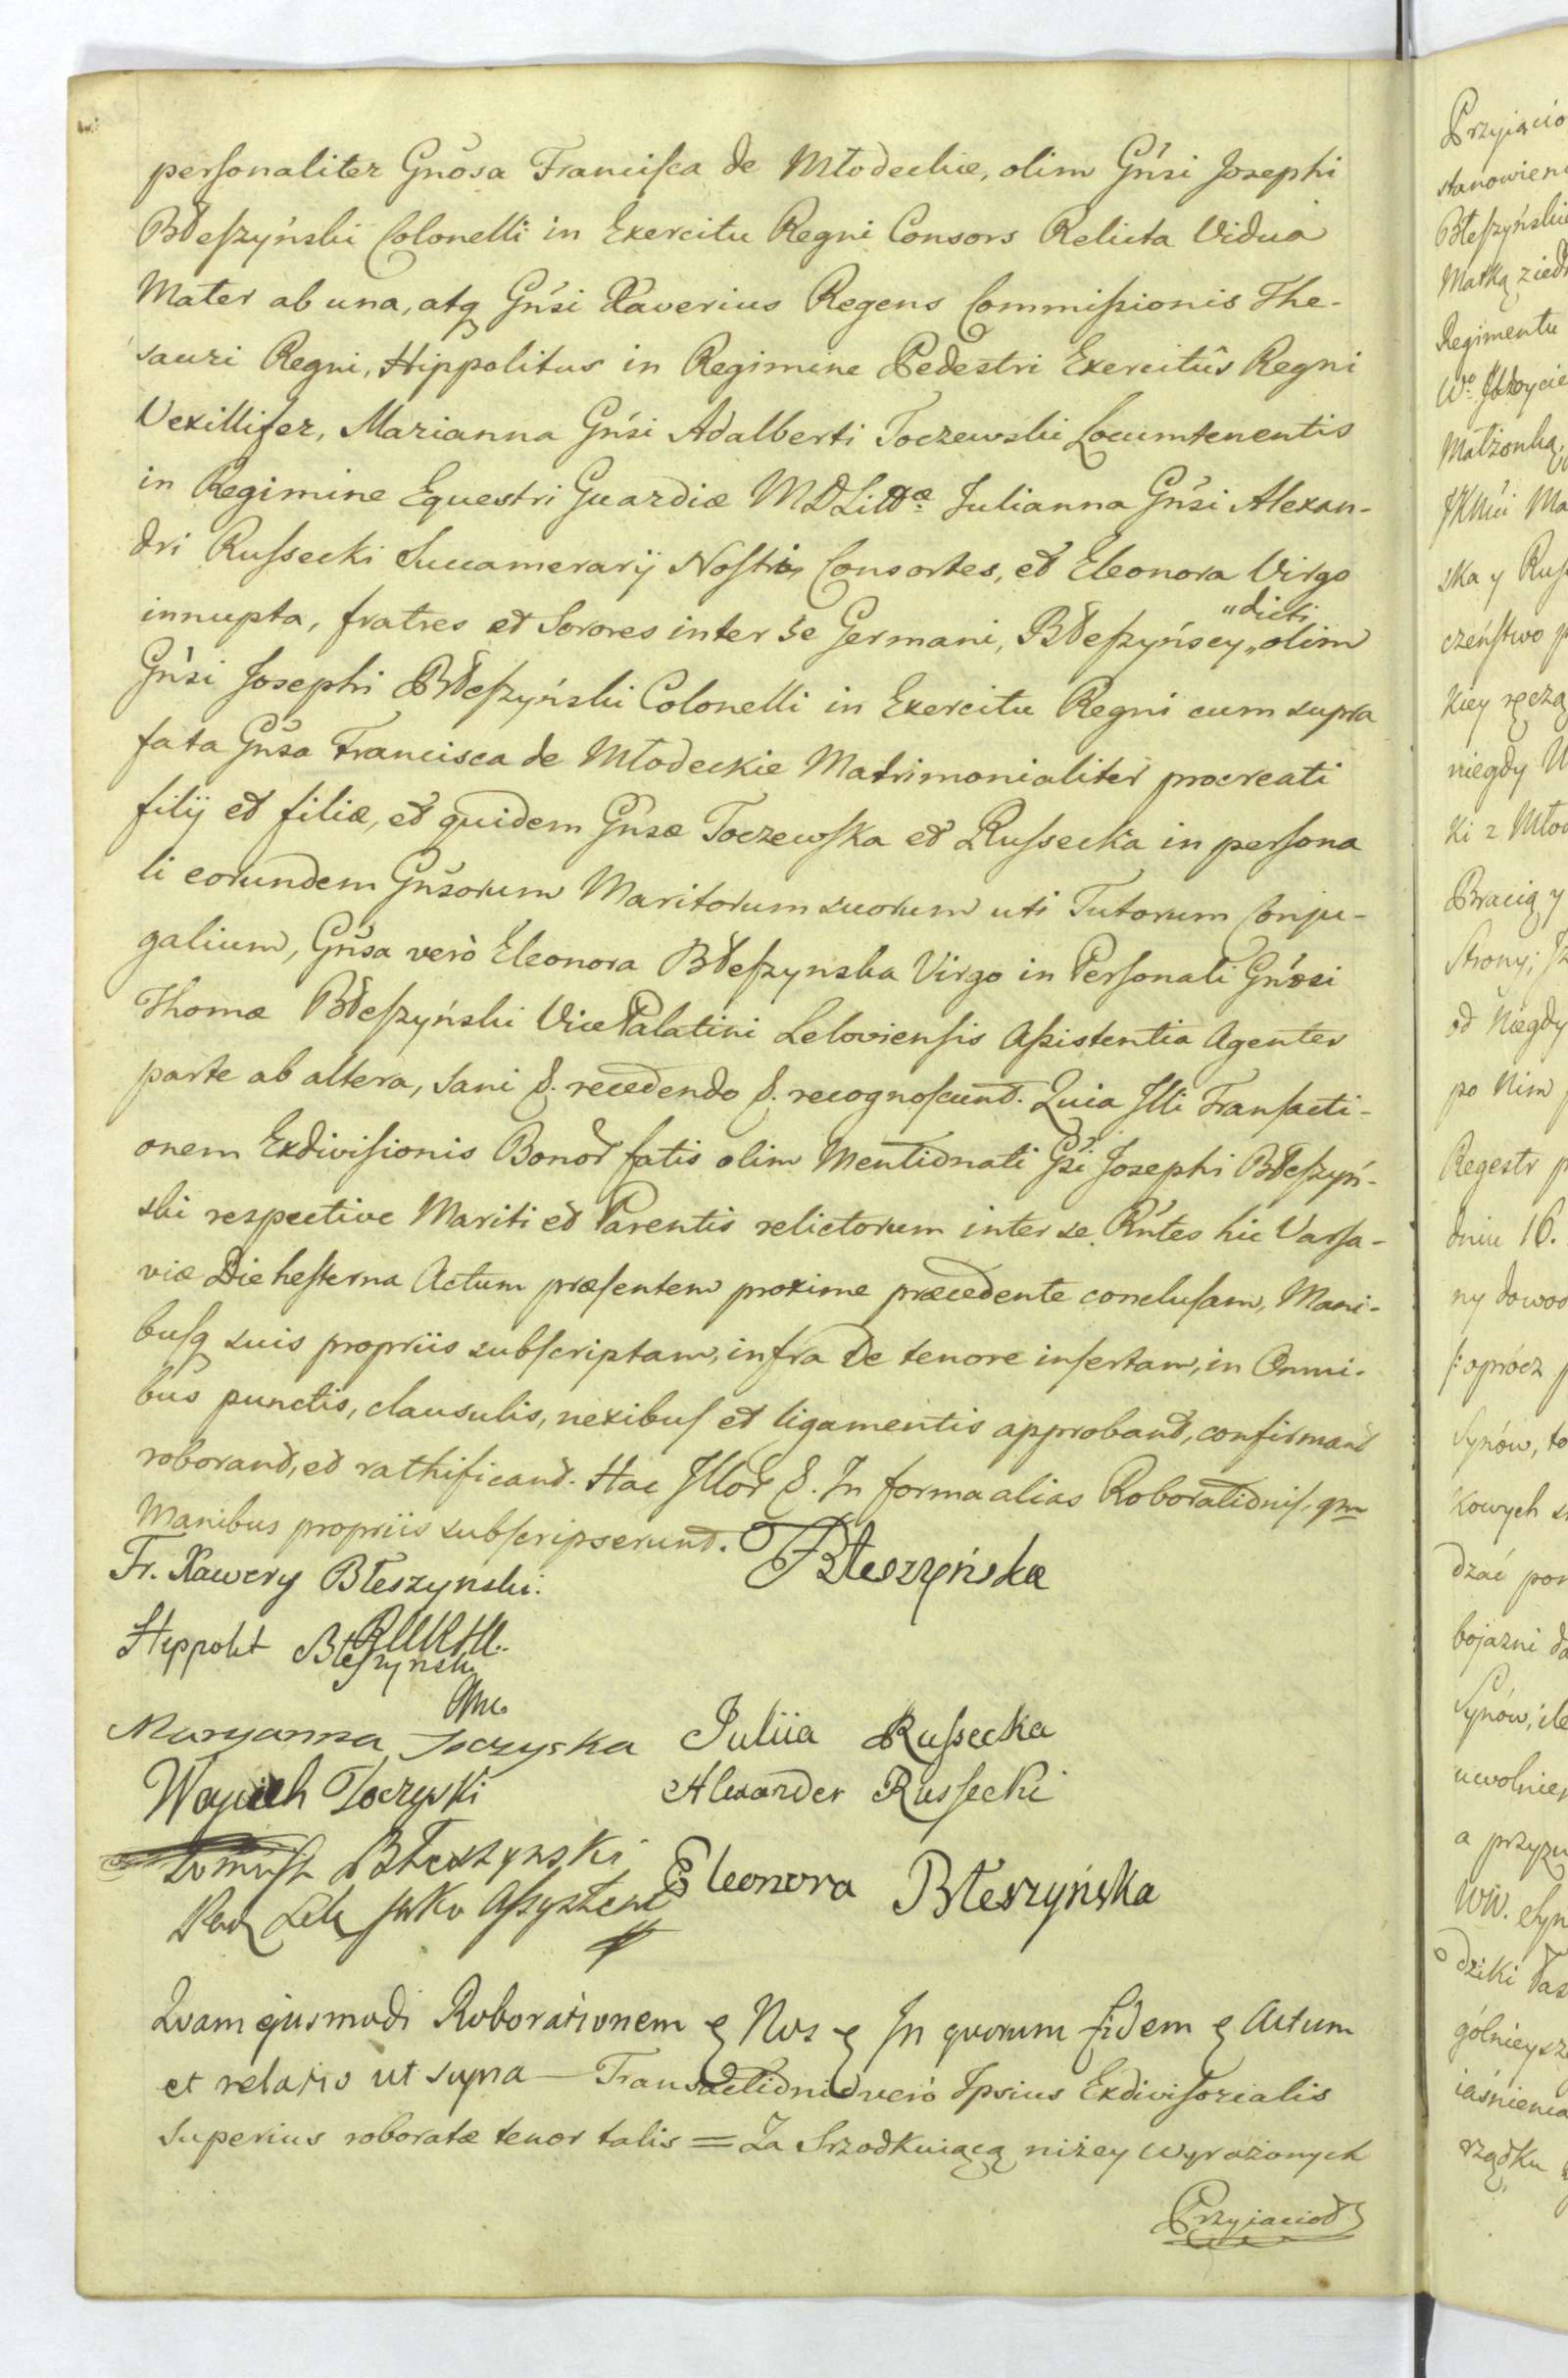 personaliter Gnosa Francisca de Młodeckie, olim Gnsi Josephi
Błeszyński Colonelli in Exercitu Regni Consors Relicta Vidua
Mater ab una, atq Gnsi Xaverius Regens Commissionis The-
sauri Regni, Hippolitus in Regimine Pedestri Exercitûs Regni
Vexillifer, Marianna Gnsi Adalberti Toczewski Locumtenentis
in Regimine Equestri Guardiæ M D Littæ Julianna Gnsi Alexan-
dri Russecki Succamerarij Nostri Consortes, et Eleonora Virgo
innupta, fratres et Sorores inter se Germani, Błeszyńscy „olim
„dicti
Gnsi Josephi Błeszyński Colonelli in Exercitu Regni cum supra
fata Gnsa Francisca de Młodeckie Matrimonialiter procreati
filij et filiæ, et quidem Gnsæ Toczewska et Russecka in persona
li eorundem Gnsorum Maritorum suorum uti Tutorum Conju-
galium, Gnsa verò Eleonora Błeszynska Virgo in Personali Gnosi
Thomæ Błeszyński Vice Palatini Leloviensis Assistentia Agentes
parte ab altera, sani &. recedendo &. recognoscunt. Quia Illi Transacti-
onem Exdivisionis Bonor fatis olim Mentionati Gsi Josephi Błeszyń-
ski respective Mariti et Parentis relictorum inter se Rntes hic Varsa-
viæ Die hesterna Actum præsentem proxime præcedente conclusam, Mani-
busq suis propriis subscriptam, infra de tenore insertam, in Omni-
bus punctis, clausulis, nexibus et ligamentis approband, confirmant
roborand, et rathificant. Hac Illor &. In forma alias Roborationis, qm
Manibus propriis subscripserunt.
FBłeszyńska
Fr. Xawery Błeszynski.
Hippolit Błeszynski
Maryanna Toczyska Juliia Russecka
Woyciech Toczyski Alexander Russecki
Tomasz Błeszynski Eleonora Błeszyńska
Lel jako Assystent
Quam ejusmodi Roborationem & Nos & In quorum fidem & Actum
et relatio ut supra — Transactionis verò Ipsius Exdivisorialis
superius roboratæ tenor talis = Za Srzodkuiącą niżey wyrażonych
Przyjaciół
Przyiació
stanowieni
Błeszyńskie
Matką zied
Regimentu
Małżonką,
ska y Rus
czeństwo p
kiey ręczą
niegdy W
ki z Młod
Bracią y
Strony; J
od Niegdy
po Nim
Regestr p
dniu 16.
ny dowod
/: oprócz p
Synów, to
kowych s
dzać por
bojazni d
Synów, ile
uwolnien
a przyzn
WW. Syn
dziki Tas
gólnieysz
iaśnienia
rządku